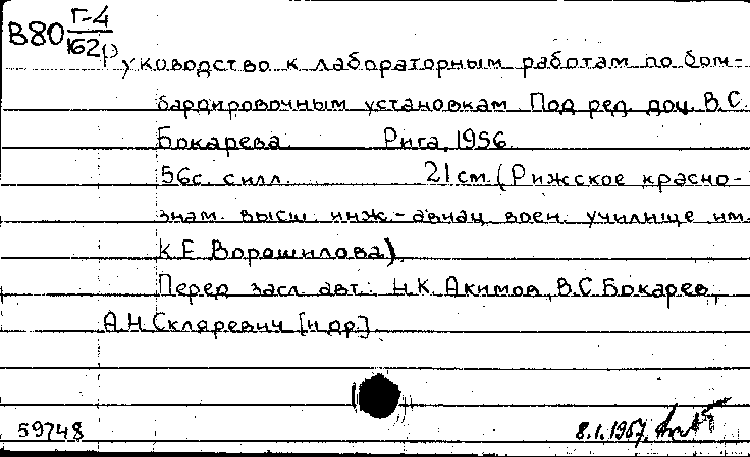 В80 Г-4
162
Руководство к лабораторным работам по бом-
бардировочным установкам. Под ред. доц. В.С.
Бокарева. Рига, 1956.
56с. с илл. 21 см. (Рижское красно-
знам. высш. инж.-авиац. воен. училище им.
К.Е. Ворошилова)
Перед загл. авт.: Н.К. Акимов, В.С. Бокарев,
А.Н. Скларевич [и др.]
59748 8.1.1957.